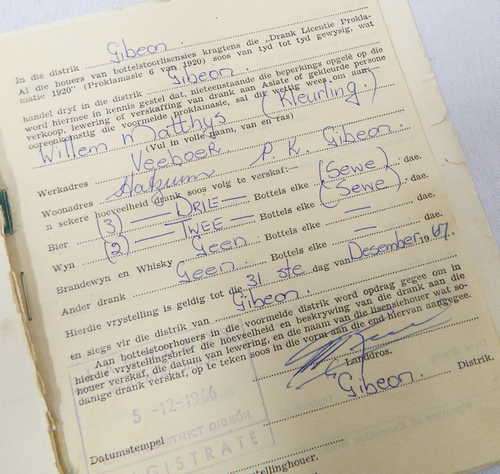 In die distrik Gibeon
Al die houers van bottelstoorlisensies kragtens die „Drank Licentie Prokla-
matie 1920" (Proklamasie 6 van 1920) soos van tyd tot tyd gewysig, wat
handel dryf in die distrik Gibeon.
word hiermee in kennis gestel dat, nieteenstaande die beperkings opgelê op die
verkoop, lewering of verskaffing van drank aan Asiate of gekleurde persone
ooreenkomstig die voormelde proklamasie, sal dit wettig wees om aan
Willem Matthys (Kleurling.)
(Vul in volle naam, van en ras)
Werkadres Veeboer
Woonadres P.K. Gibeon.
'n sekere hoeveelheid drank soos volg te verskaf:—
Bier (3) — DRIE — Bottels elke (Sewe) dae.
Wyn (2) — TWEE — Bottels elke (Sewe) dae.
Brandewyn en Whisky Geen Bottels elke — dae.
Ander drank Geen. Bottels elke — dae.
Hierdie vrystelling is geldig tot die 31 ste dag van Desember 1967.
en slegs vir die distrik van Gibeon.
Aan bottelstoorhouers in die voormelde distrik word opdrag gegee om in
hierdie vrystellingsbrief die hoeveelheid en beskrywing van die drank aan die
houer verskaf, die datum van lewering, en die naam van die lisensiehouer wat so-
danige drank verskaf, op te teken soos in die vorm aan die end hiervan aangegee.
Landdros.
Gibeon. Distrik.
5 -12-1966
Datumstempel
DISTRICT GIBEON
MAGISTRATE
stellinghouer.